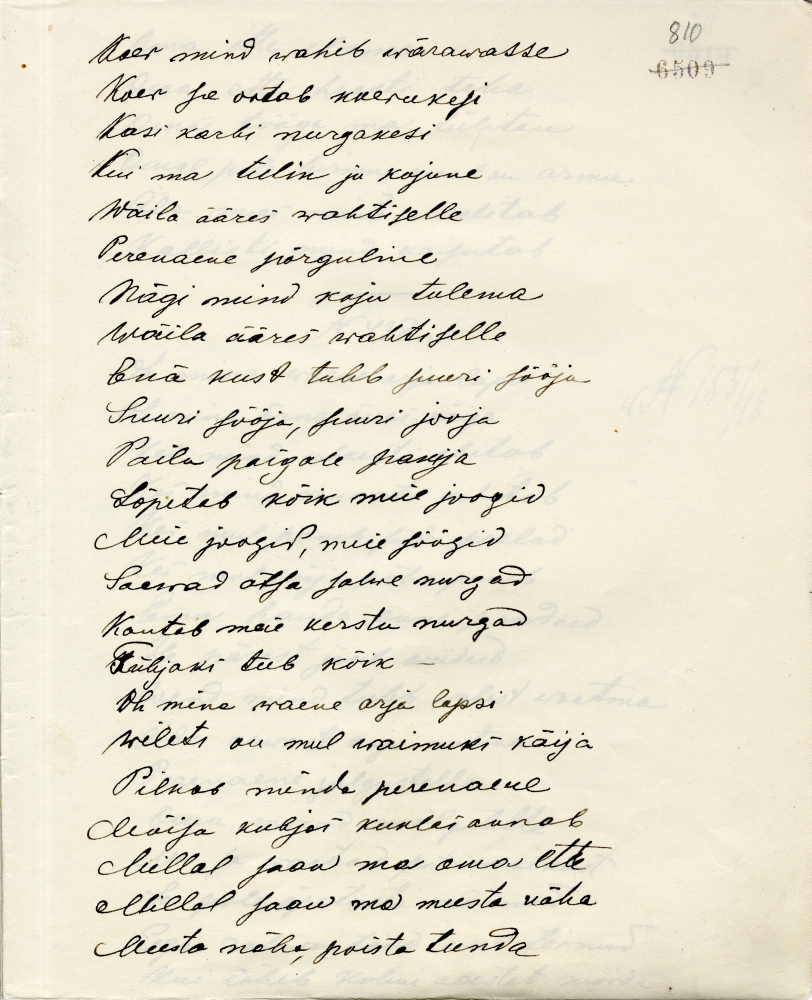 810
6509
Koer mind wahib wärawasse
Koer se ootab koerukesi
Kasi karbi nurgakesi
Kui ma tulin ju kojune
Wäila ääres wahtiselle
Perenaene põrguline
Nägi mind koju tulema
Wäila ääres wahtiselle
Enä kust tuleb suuri sööja
Suuri sööja, suuri jooja
Pailu paigale panija
Lõpetab kõik meie joogid
Meie joogid, meie söögid
Saewad otsa salwe nurgad
Kautab meie kerstu nurgad
Tühjaks teeb kõik –
Oh mina waene orja lapsi
Wilets on mul waimuks käija
Pilkab minda perenaene
Mõisa kubjas kuklas annab
Millal saan ma oma ette
Millal saan ma meesta näha
Meesta näha, poista tunda